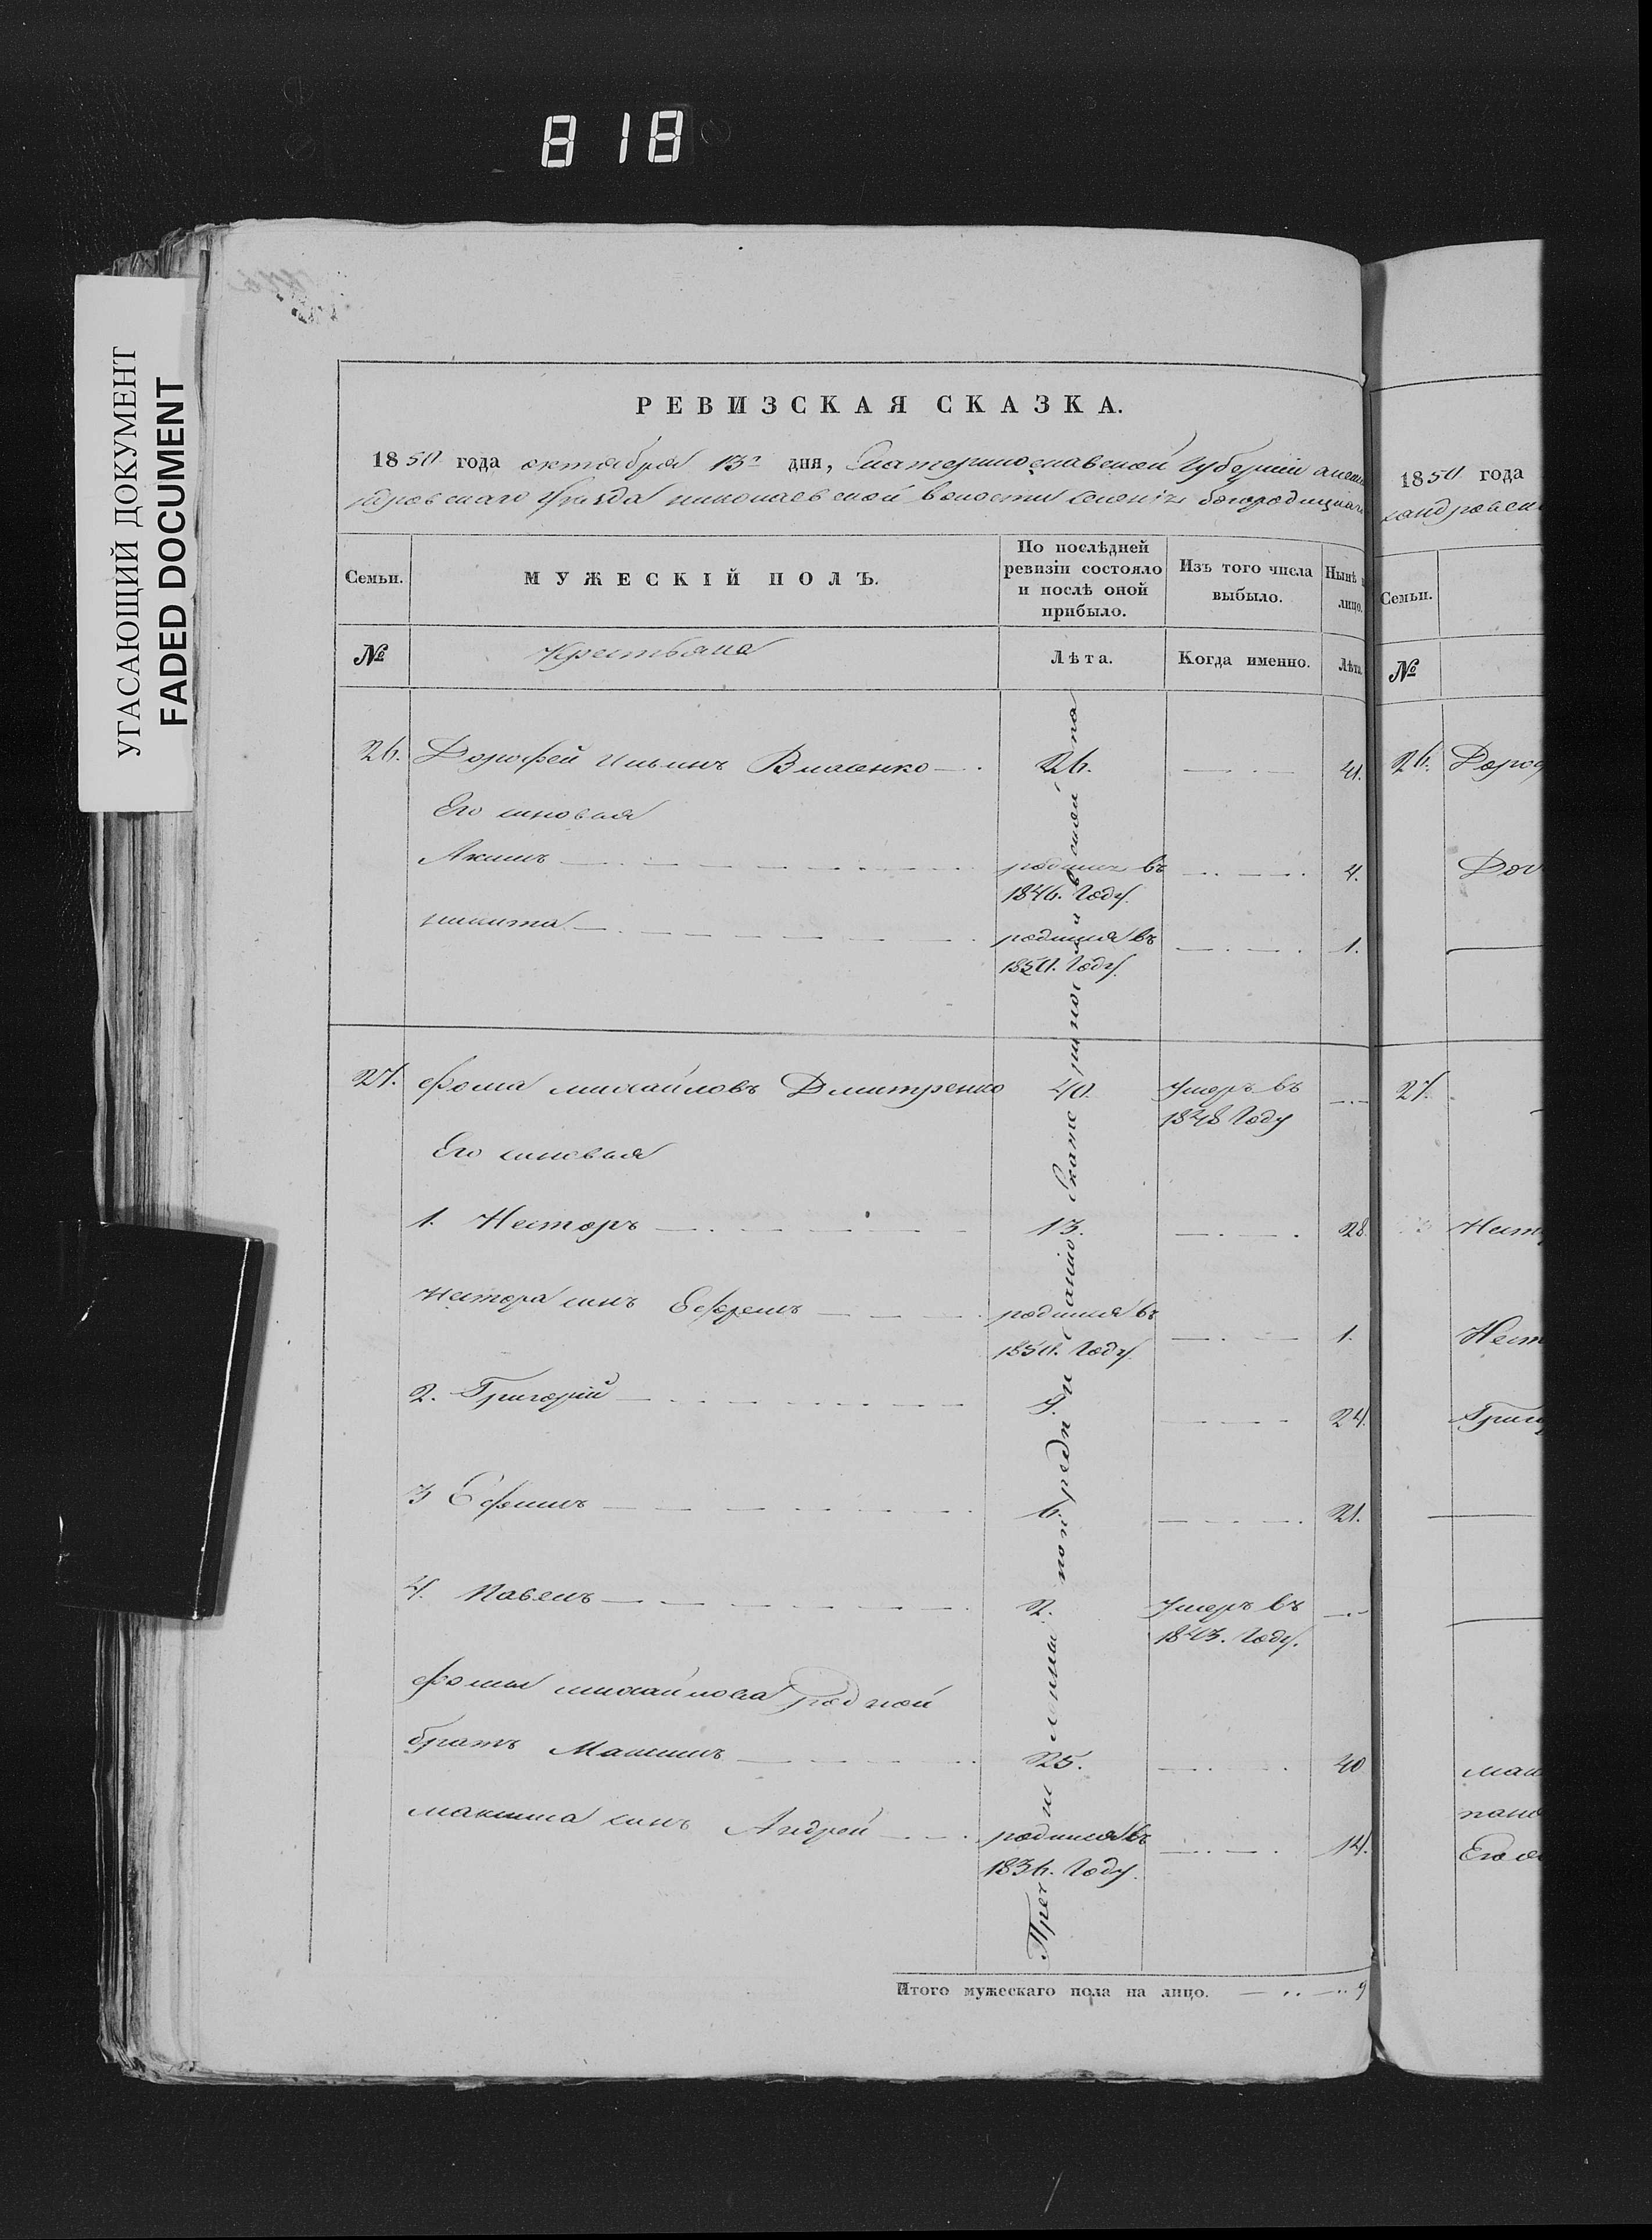 818
УГАСАЮЩИЙ ДОКУМЕНТ
FADED DOCUMENT
РЕВИЗСКАЯ СКАЗКА.
1850 года октября 13го дня, Екатеринославской Губерніи алекса
ндровскаго Уѣзда николаевской волости богородицкаго
Семьи.
МУЖЕСКІЙ ПОЛЪ.
По послѣдней ревизіи состояло и послѣ оной прибыло.
Изъ того числа выбыло.
Нынѣ лицо.
№
Крестьяне
Лѣта.
Когда именно.
Лѣта
26. Дорофей Ильинъ Власенко 26. 41.
Его сыновья
Акимъ родился въ 4.
1846. Году.
никита родился въ 1.
1850. Году.
27. Фома михайловъ Дмитренко 40. Умеръ въ
1848 Году
Его сыновья
1. Несторъ 13. 28.
Нестора сынъ Ефремъ родился въ 1.
1850. Году.
2. Григорій 9. 24.
3 Ефимъ 6. 21.
4. Павелъ 2. Умеръ въ
1843. Году.
Фомы михайлова родной
братъ Максимъ 25. 40
максима сынъ Андрей родился въ 14.
1836. Году.
Итого мужескаго пола на лицо. 9
1850 года
Семьи.
№
26.
27.